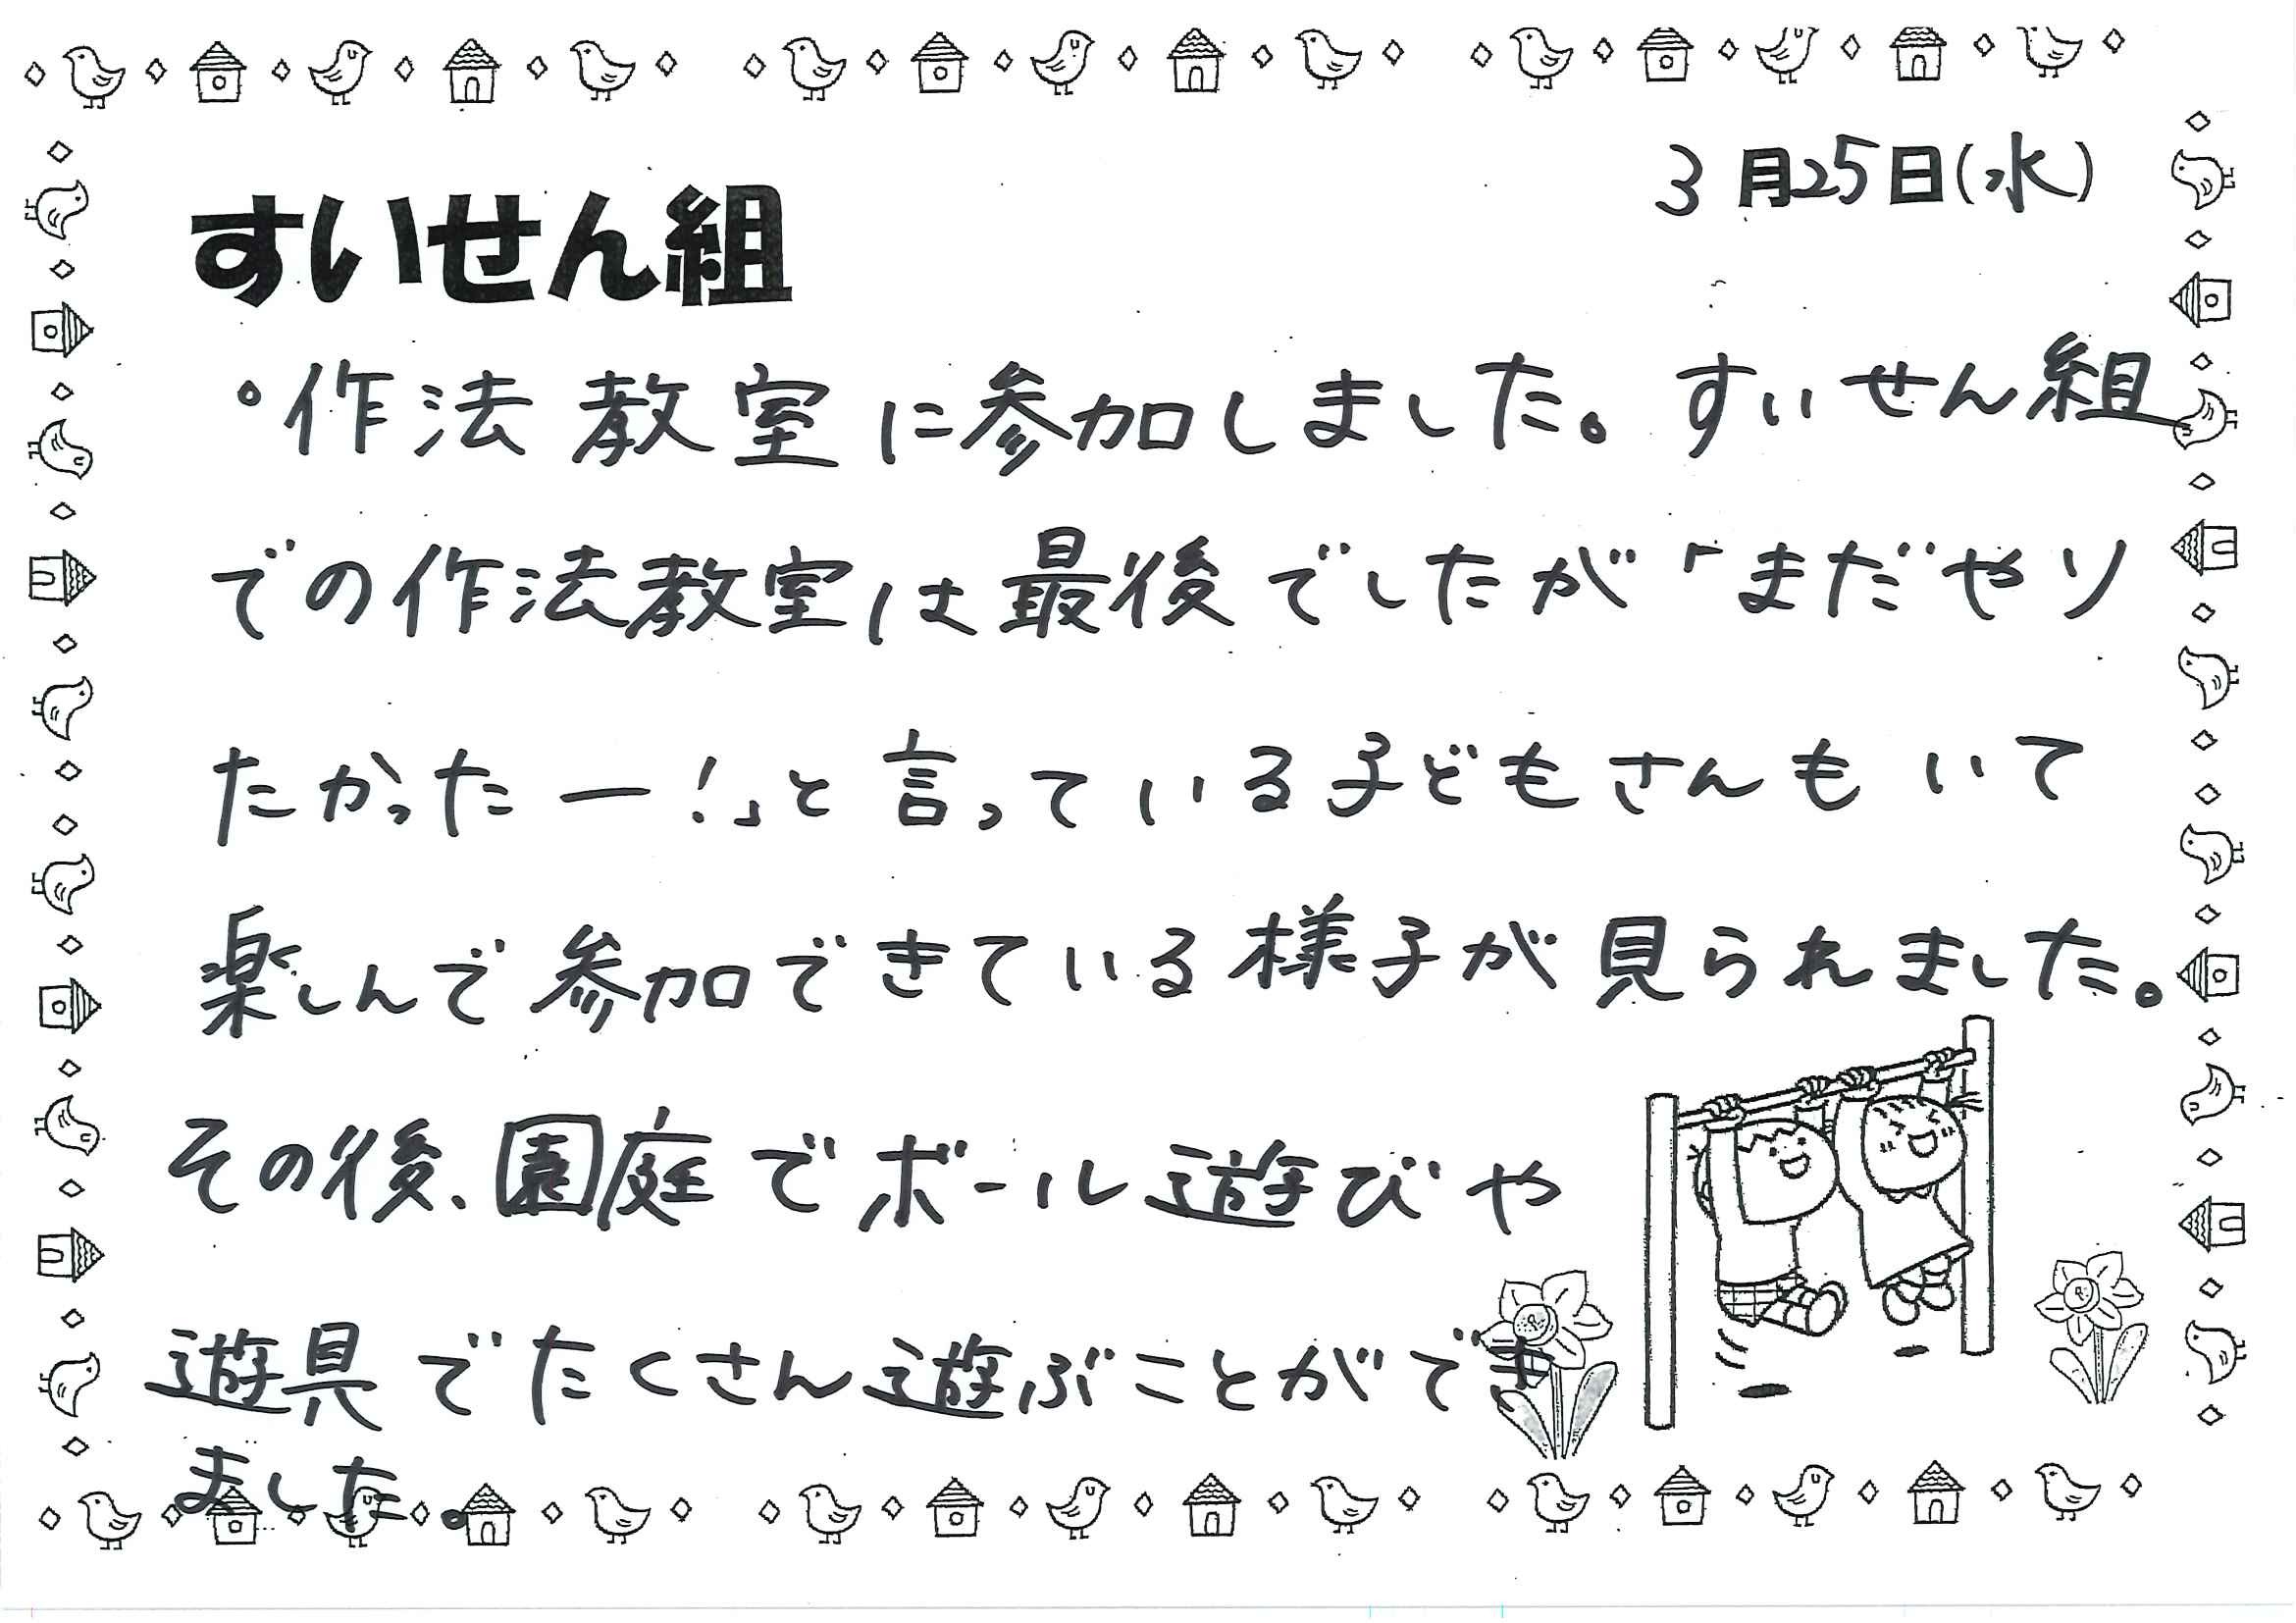 3月25日(水)
すいせん組
。作法教室に参加しました。すいせん組
での作法教室は最後でしたが「まだやり
たかったー!」と言っている子どもさんもいて
楽しんで参加できている様子が見られました。
その後、園庭でボール遊びや
遊具でたくさん遊ぶことができ
ました。